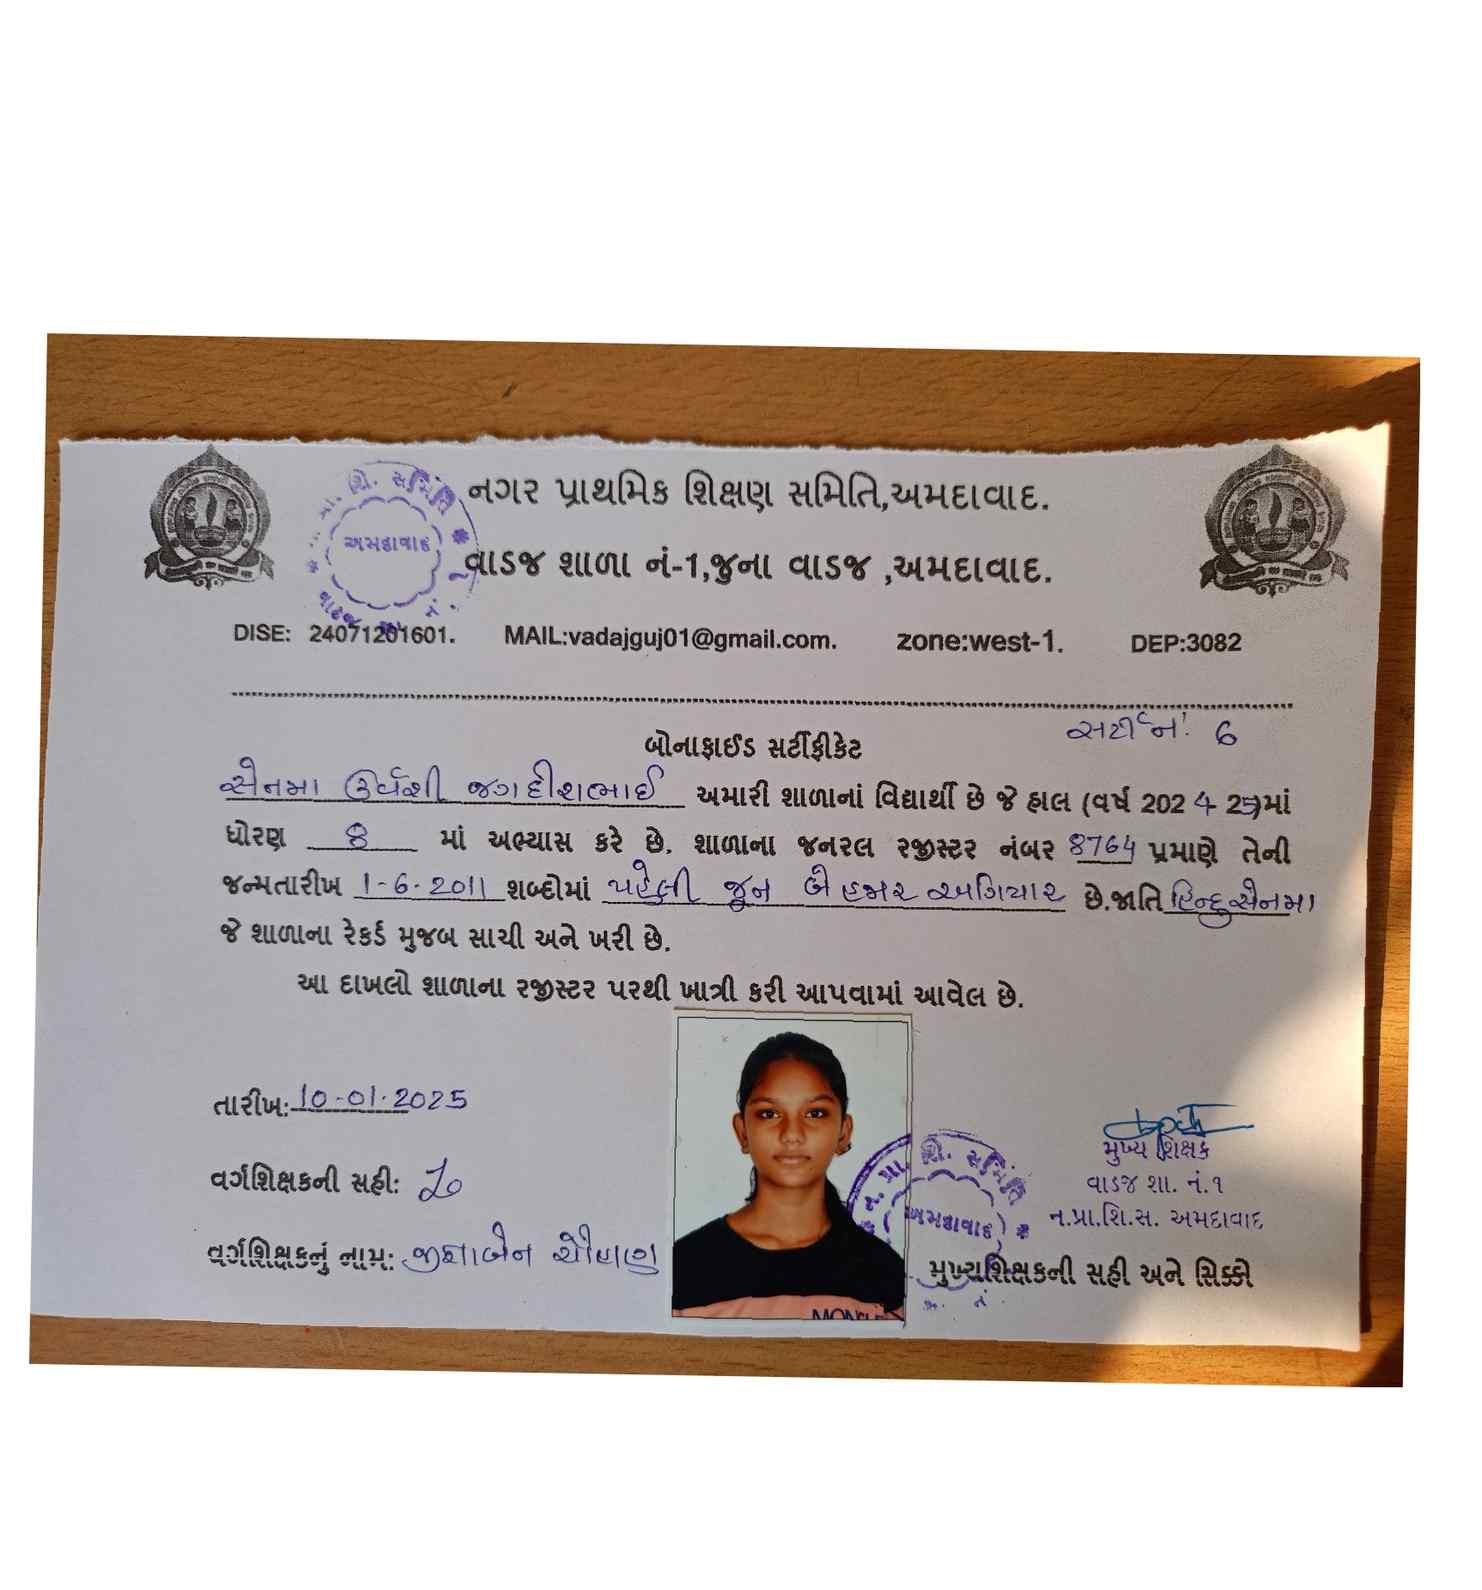 નગર પ્રાથમિક શિક્ષણ સમિતિ,અમદાવાદ.
વાડજ શાળા નં-1,જુના વાડજ ,અમદાવાદ.
શિ. સમિતિ
અમદાવાદ
વાડજ
DISE: 24071201601. MAIL:vadajguj01@gmail.com. zone:west-1. DEP:3082
સર્ટી નં. 6
બોનાફાઈડ સર્ટીફીકેટ
સેનમા ઉર્વશી જગદીશભાઈ અમારી શાળાનાં વિદ્યાર્થી છે જે હાલ (વર્ષ 2024 25)માં
ધોરણ 8 માં અભ્યાસ કરે છે. શાળાના જનરલ રજીસ્ટર નંબર 8764 પ્રમાણે તેની
જન્મતારીખ 1-6-2011 શબ્દોમાં પહેલી જૂન બે હજાર અગિયાર છે.જાતિ હિન્દુ સેનમા
જે શાળાના રેકર્ડ મુજબ સાચી અને ખરી છે.
આ દાખલો શાળાના રજીસ્ટર પરથી ખાત્રી કરી આપવામાં આવેલ છે.
તારીખ: 10-01-2025
વર્ગશિક્ષકની સહી:
વર્ગશિક્ષકનું નામ: જીજ્ઞાબેન ચૌહાણ
ન. પ્રા. શિ. સમિતિ
અમદાવાદ
મુખ્ય શિક્ષક
વાડજ શા. નં.૧
ન.પ્રા.શિ.સ. અમદાવાદ
મુખ્યશિક્ષકની સહી અને સિક્કો